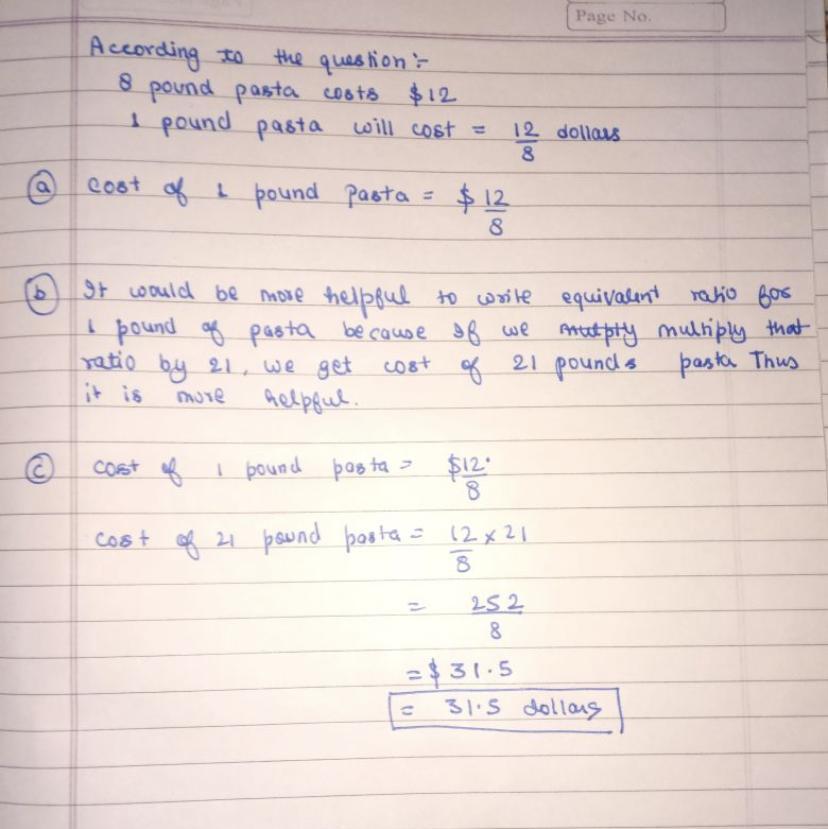 Page No.
According to the question :-
8 pound pasta costs $12
1 pound pasta will cost = 12/8 dollars
(a) cost of 1 pound pasta = $ 12/8
(b) It would be more helpful to write equivalent ratio for
1 pound of pasta because If we mutpty multiply that
ratio by 21, we get cost of 21 pounds pasta Thus
it is more helpful.
(c) cost of 1 pound pasta = $12/8
cost of 21 pound pasta = 12/8 x 21
= 252/8
= $ 31.5
= 31.5 dollars